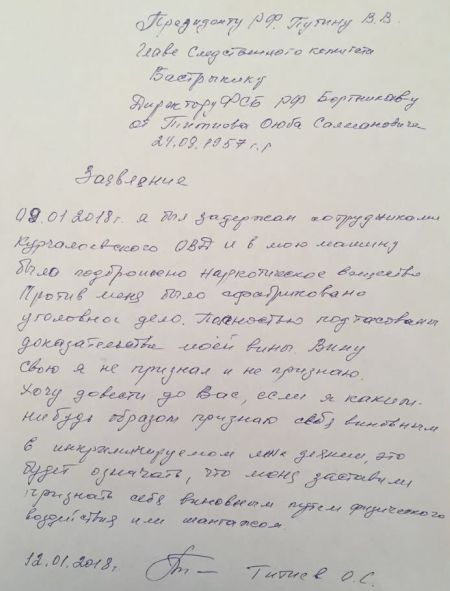 Президенту РФ. Путину В.В.
Главе Следственного комитета
Бастрыкину
Директору ФСБ РФ Бортникову
от Титиева Оюба Салмановича
24.08.1957 г.р
Заявление
09.01 2018г. я был задержан сотрудниками
Курчалоевского ОВД и в мою машину
было подброшено наркотическое вещество
Против меня было сфабриковано
уголовное дело. Полностью подтасованы
доказательства моей вины. Вину
свою я не признал и не признаю.
Хочу довести до Вас, если я каким-
нибудь образом признаю себя виновным
в инкриминируемом мне деянии, это
будет означать, что меня заставили
признать себя виновным путем физического
воздействия или шантажом.
12.01.2018г. Титиев О.С.